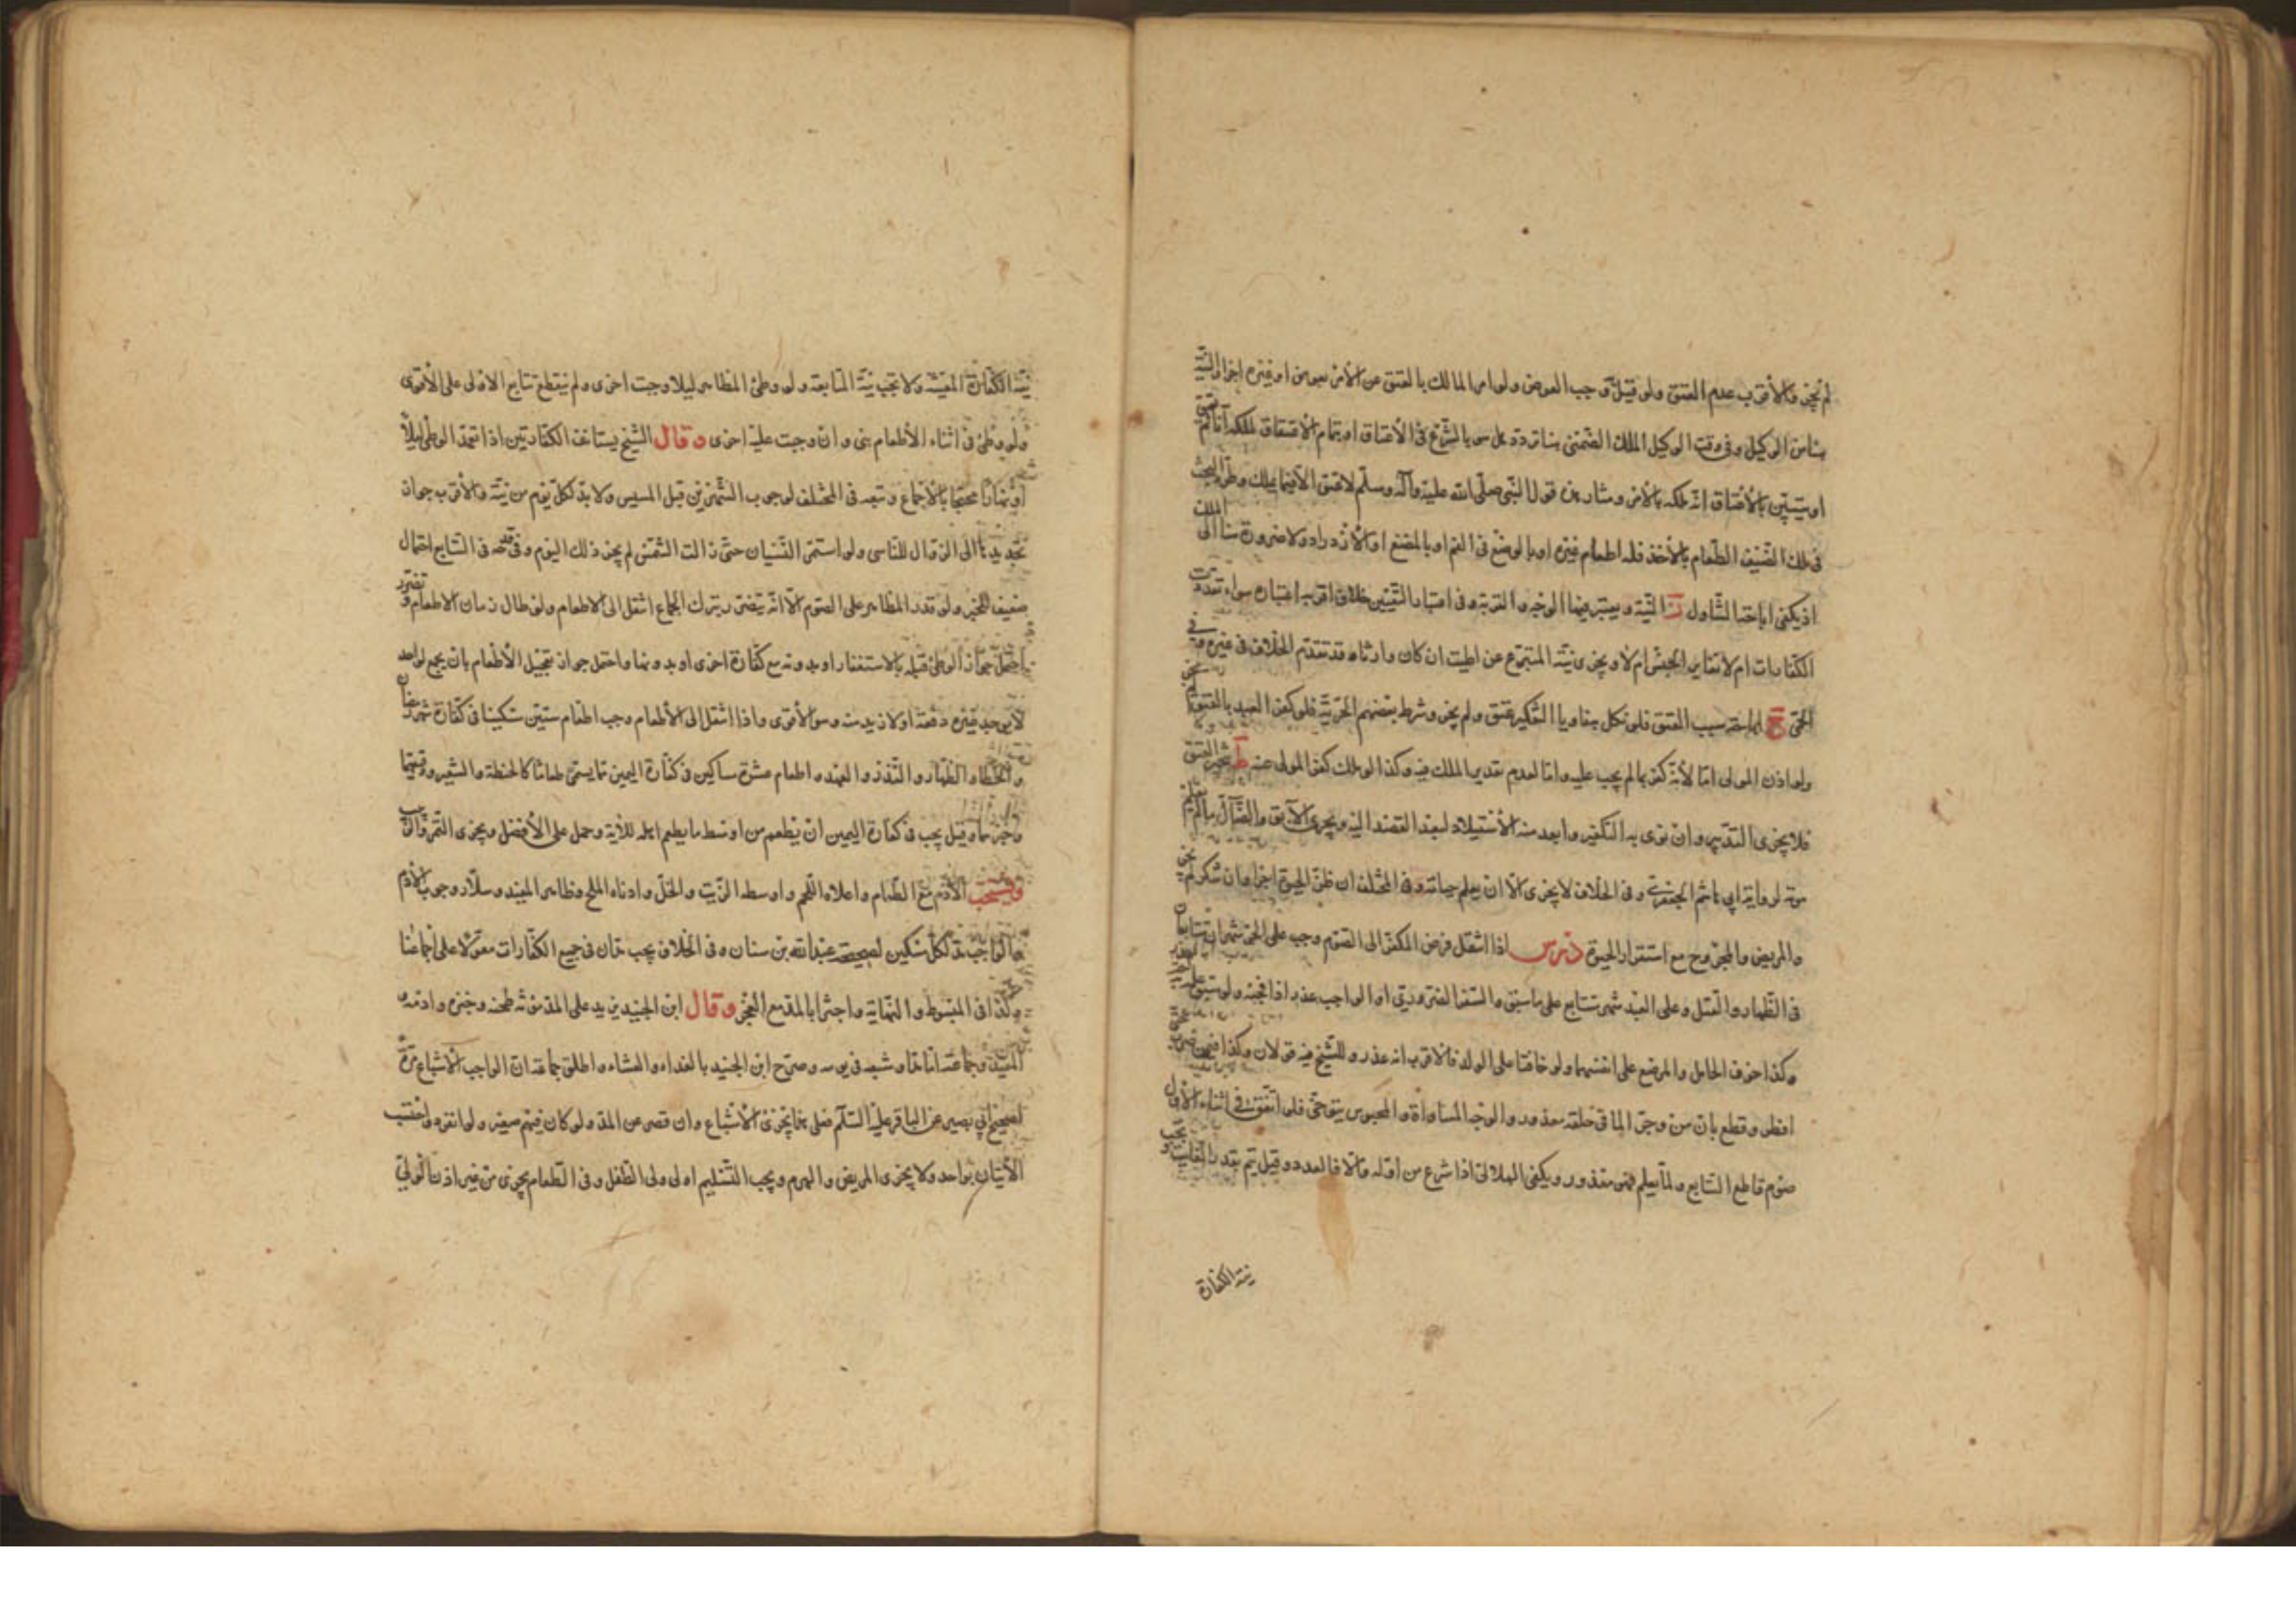 لم يجز والأقرب عدم العتق ولو قيل وجب العوض ولو امر المالك بالعتق عن الآمر بعوض او غيره اجزا والنية
بناس الوكيل وفى وقت الملك الضمنى بنا تردد هل هو بالشروع فى الأعتاق او بتمام الأعتاق لملكه آناً ثم يعتق
او يتبين بالأعتاق انه ملكه بالأمر ومثاره من قول النبى صلى الله عليه وآله وسلم لا عتق الا فيما يملك وطرد البحث
فى ملك الضيف الطعام بالأخذ فله اطعام غيره او بالوضع فى الفم او بالمضغ او الأزدراد ولا ضرورة هنا الى الملك
اذ يكفى اباحة التناول ز النية ويعتبر فيها الوجه والقربة وفى اعتبار التعيين خلاف اقربه اعتباره سواء تعددت
الكفارات ام لا تغاير الجنس ام لا ويجزى نية المتبرع عن الميت ان كان وارثاه قد تقدم الخلاف فى غيره وفى
الحى ح سبب العتق فلو نكل بعبده ناويا التكفير عتق ولم يجز وشرط بعضهم الحرية فلو كفر العبد بالعتق لم يجز
ولو اذن المولى اما لأنه كفر بما لم يجب عليه واما لعدم تقدير الملك فيه وكذا لو ملك كفر المولى عنه ط تنجيز العتق
فلا يجزى التدبير وان نوى به التكفير وابعد منه الأستيلاد لبعد القصد اليه ويجزى الآبق والضال ما لم يعلم
موته لرواية ابى هاشم الجعفرى وفى الخلاف لا يجزى الا ان يعلم حياته وفى المختلف ان ظن الحيوة اجزا وان شك لم يجز
والمريض والمجروح مع استقرار الحيوة درس اذا انتقل فرض المكفر الى الصوم وجب على الحر شهران متتابعان
فى الظهار والقتل وعلى العبد شهر يتتابع على ما سبق والسفر الضرورى او الواجب عذر اذا فجئه ولو سبق علمه لم يعذر
وكذا خوف الحامل والمرضع على انفسهما ولو خافتا على الولد فالاقرب انه عذر وللشيخ فيه قولان وكذا
افطر وقطع بان من وجر الما فى حلقه معذور والوجه المساواة والمحبوس يتوخى فلو اتفق فى اثناء الأول
صوم قاطع التتابع ولما يعلم فهو معذور ويكفى الهلالى اذا شرع من اوله والا فالعدد وقيل يتم بقدر الفائت ويجب
نية الكفارة
نية الكفارة المعينة ولا تجب نية المتابعة ولو وطئ المظاهر ليلا وجبت اخرى ولم ينقطع تتابع الاولى على الأقوى
ولو وطئ فى اثناء الأطعام بنى وان وجبت عليه اخرى وقال الشيخ يستانف الكفارتين اذا تعمد الوطى ليلاً
او نهارا محتجا بالأجماع وتبعه فى المختلف لوجوب الشهرين قبل المسيس ولا بد لكل يوم من نية والأقرب جواز
تجديدها الى الزوال للناسى ولو استمر النسيان حتى زالت الشمس لم يجز ذلك اليوم وفى قدحه فى التتابع احتمال
ضعيف للخبر ولو قدر المظاهر على الصوم الا انه يتضرر بترك الجماع انتقل الى الاطعام ولو طال زمان الاطعام وتضرر
احتمل جواز الوطئ قبله بالاستغفار او بدونه مع كفارة اخرى او بدونها واحتمل جواز تعجيل الأطعام بان يجمع لواحد
لا يوجد غيره دفعة او لازيد منه وهو الأقوى واذا انتقل الى الأطعام وجب اطعام ستين مسكينا فى كفارة شهر رمضان
والخطاء والظهار والنذر والعهد واطعام عشرة مساكين فى كفارة اليمين مما يسمى طعاما كالحنطة والشعير ودقيقهما
وخبزهما وقيل يجب فى كفارة اليمين ان يطعم من اوسط ما يطعم اهله للأية وحمل على الأفضل ويجزى التمر والزبيب
ويستحب الأدم مع الطعام واعلاه اللحم واوسطه الزيت والخل وادناه الملح وظاهر المفيد وسلار وجوب الأدم
والواجب مد لكل مسكين لصحيحة عبدالله بن سنان وفى الخلاف يجب مدان فى جميع الكفارات معولا على اجماعنا
وكذا فى المبسوط والنهاية واجتزا بالمد مع العجز وقال ابن الجنيد يزيد على المد مؤنة طحنه وخبزه وادمه
المفيد وجماعة اما مد او شبعه فى يومه وصرح ابن الجنيد بالغداء والعشاء واطلق جماعة ان الواجب الأشباع مرة
لصحيح ابي بصير عن الباقر عليه السلام فعلى هذا يجزئ الأشباع وان قصر عن المد ولو كان فيهم صغير ولو انفردوا احتسب
الأثنان بواحد ولا يجزى المريض والهرم ويجب التسليم الى ولى الطفل وفى الطعام يجزى من غير اذن الولي